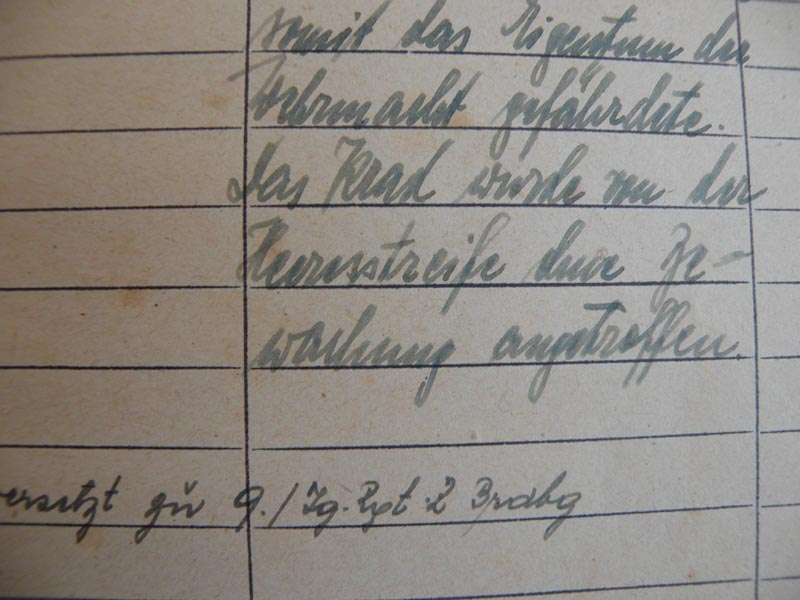 somit das Eigentum der
Wehrmacht gefährdete.
Das Krad wurde von der
Heeresstreife ohne Be-
wachung angetroffen.
versetzt zu 9./Jg. Rgt. 2 Brdbg